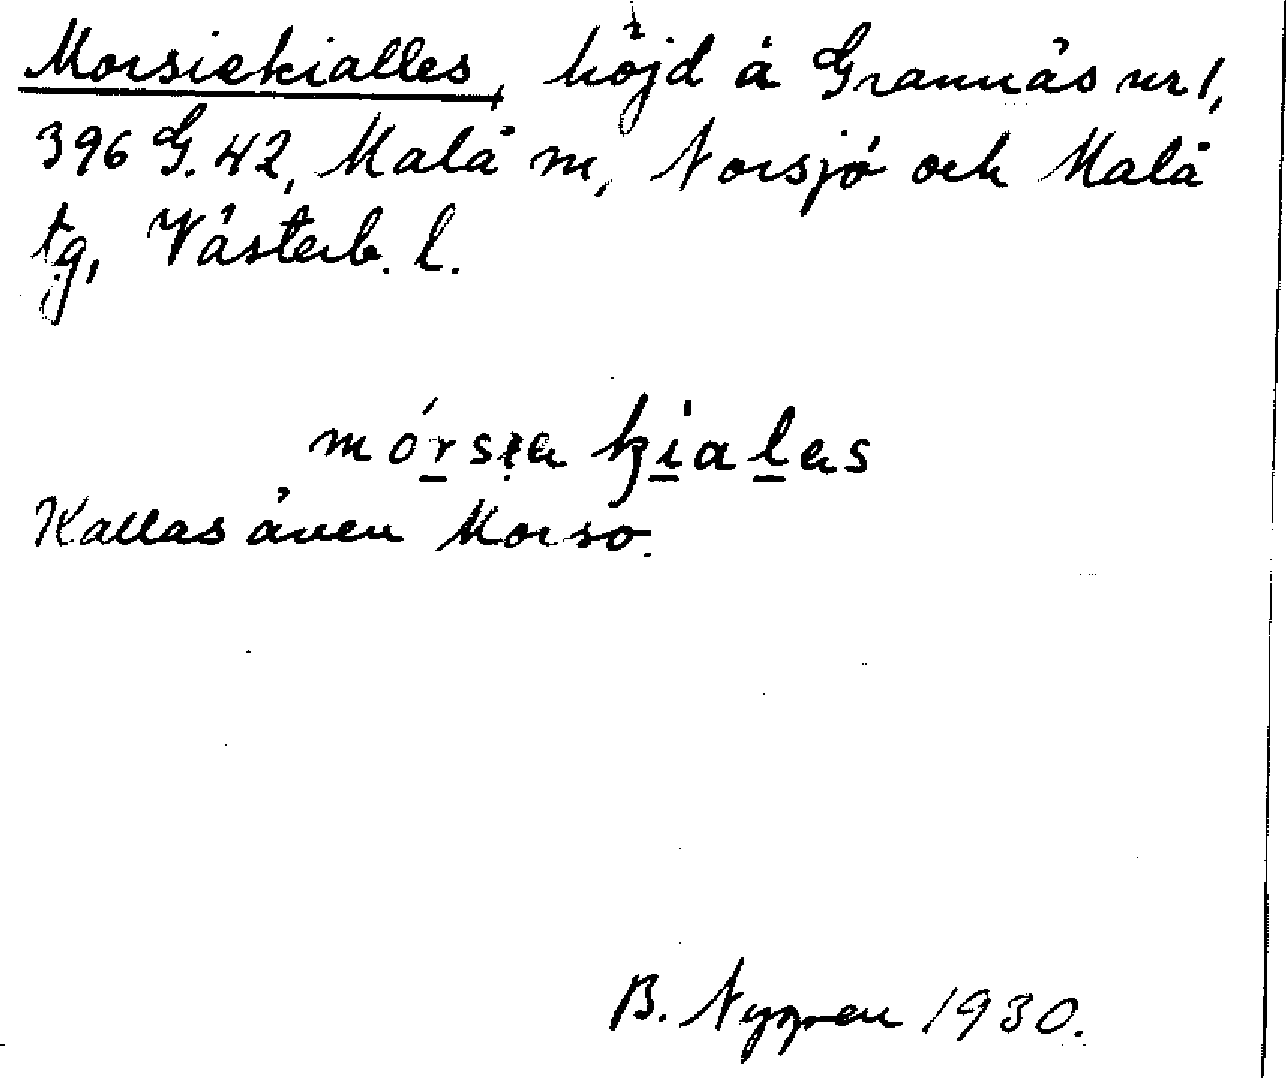 Morsiekialles, höjd å Grannäs nr 1,
396 G. 42, Malå m, Norsjö och Malå
tg, Västerb. l.
mórsi̯a ki̱al̲as
Kallas även Morso.
B. Nygren 1930.